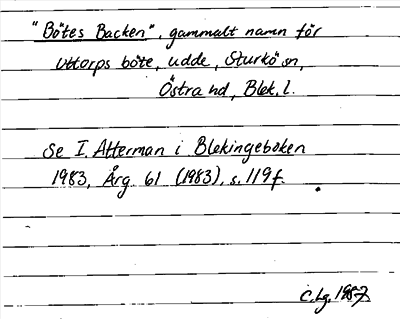 "Bötes Backen", gammalt namn för
Uttorps böte, udde, Sturkö sn,
Östra hd, Blek. l.
Se I. Atterman i Blekingeboken
1983, Årg. 61 (1983), s. 119f.
C. Lg. 1987